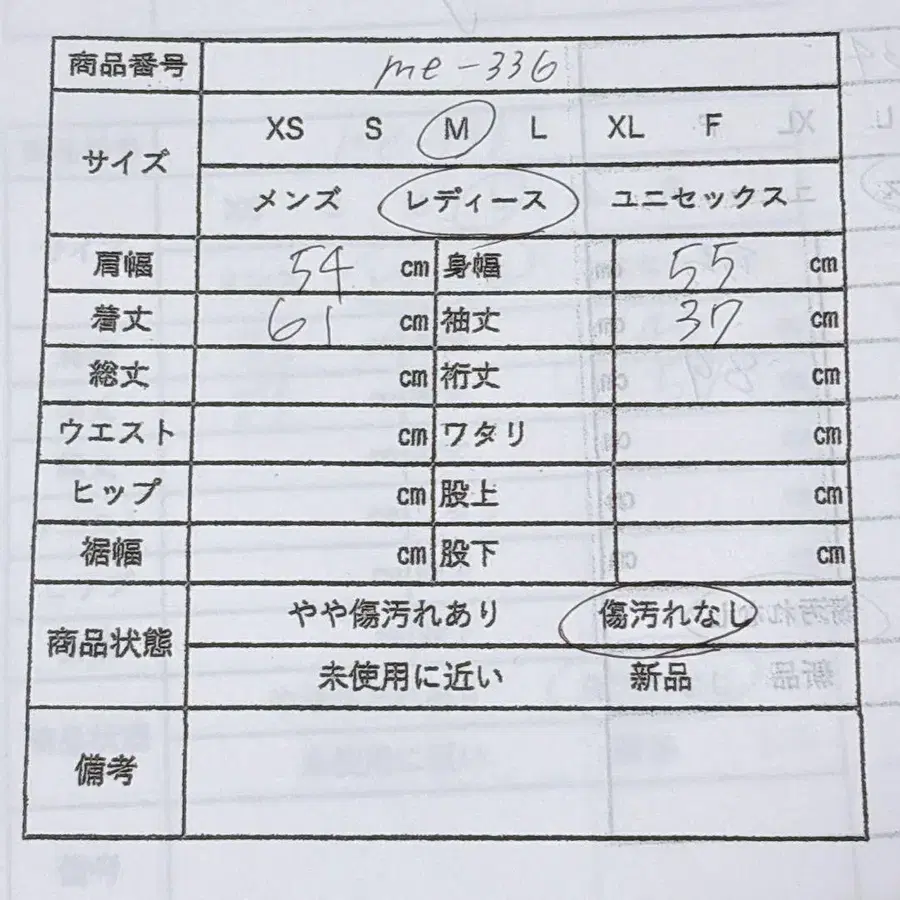 商品番号 me-336
サイズ XS S M L XL F
メンズ レディース ユニセックス
肩幅 54 cm 身幅 55 cm
着丈 61 cm 袖丈 37 cm
総丈 cm 裄丈 cm
ウエスト cm ワタリ cm
ヒップ cm 股上 cm
裾幅 cm 股下 cm
商品状態 やや傷汚れあり 傷汚れなし
未使用に近い 新品
備考